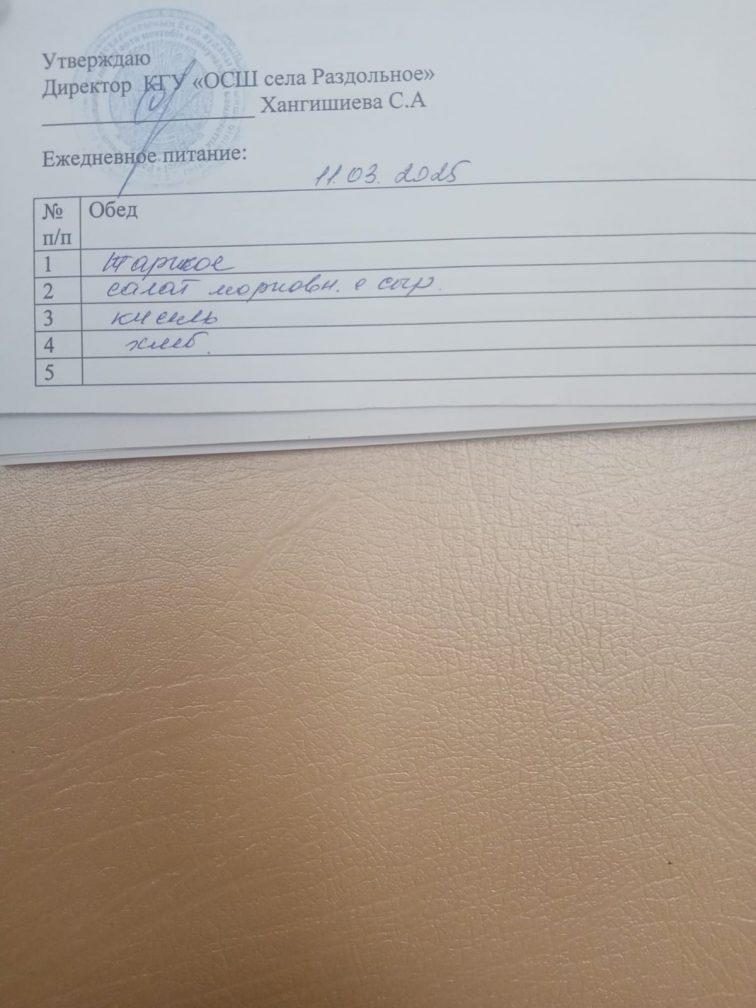 Утверждаю
Директор КГУ «ОСШ села Раздольное»
Хангишиева С.А
Ежедневное питание:
11.03.2025
№ п/п Обед
1 Жаркое
2 салат морковн. с сыр.
3 кисель
4 хлеб.
5